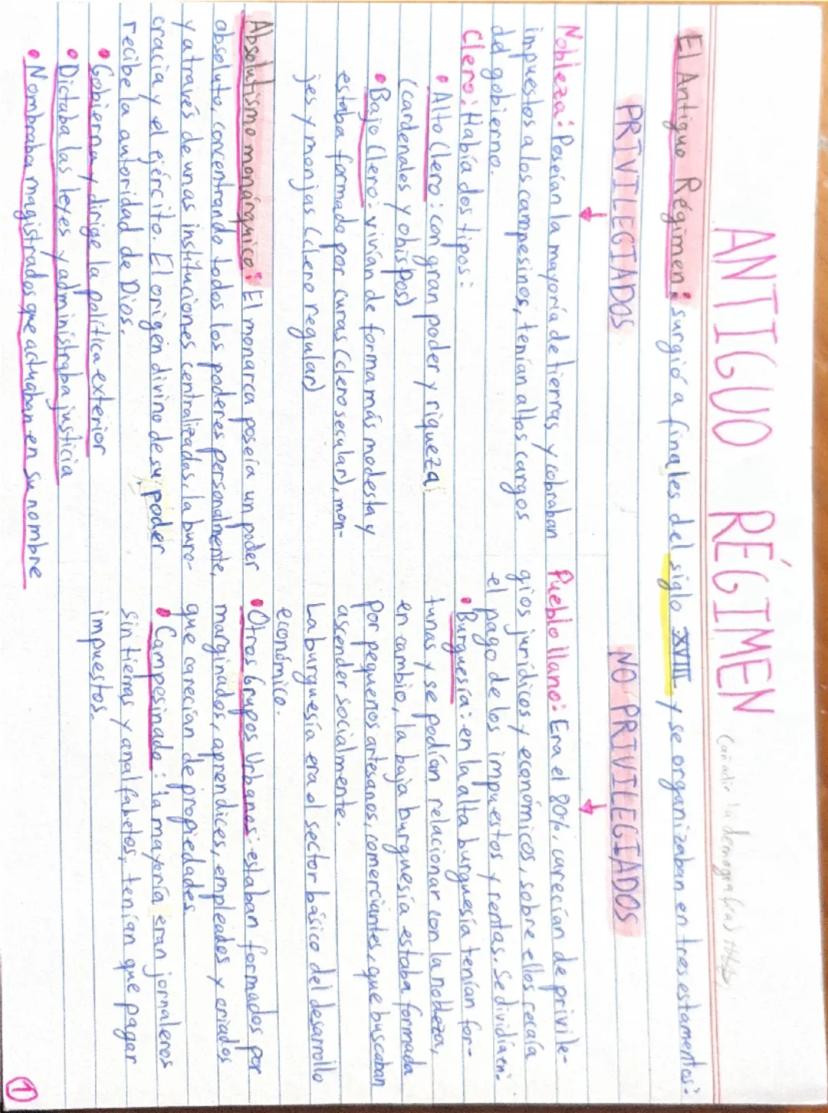 ANTIGUO RÉGIMEN (añadir la demografía)
El Antiguo Régimen: surgió a finales del siglo XVIII y se organizaban en tres estamentos:
PRIVILEGIADOS
Nobleza: Poseían la mayoría de tierras y cobraban
impuestos a los campesinos, tenían altos cargos
del gobierno.
Clero: Había dos tipos:
• Alto Clero: con gran poder y riqueza
(cardenales y obispos)
• Bajo Clero: vivían de forma más modesta y
estaba formado por curas (clero secular), mon-
jes y monjas (clero regular)
Absolutismo monárquico: El monarca poseía un poder
absoluto, concentrando todos los poderes personalmente,
y a través de unas instituciones centralizadas, la buro-
cracia y el ejército. El origen divino de su poder
recibe la autoridad de Dios.
• Gobierna y dirige la política exterior
• Dictaba las leyes y administraba justicia
• Nombraba magistrados que actuaban en su nombre
NO PRIVILEGIADOS
Pueblo llano: Era el 80%, carecían de privile-
gios jurídicos y económicos, sobre ellos recaía
el pago de los impuestos y rentas. Se dividía en:
• Burguesía: en la alta burguesía tenían for-
tunas y se podían relacionar con la nobleza,
en cambio, la baja burguesía estaba formada
por pequeños artesanos, comerciantes, que buscaban
ascender socialmente.
La burguesía era el sector básico del desarrollo
económico.
• Otros Grupos Urbanos: estaban formados por
marginados, aprendices, empleados y criados
que carecían de propiedades
• Campesinado: la mayoría eran jornaleros
sin tierras y analfabetos, tenían que pagar
impuestos.
1